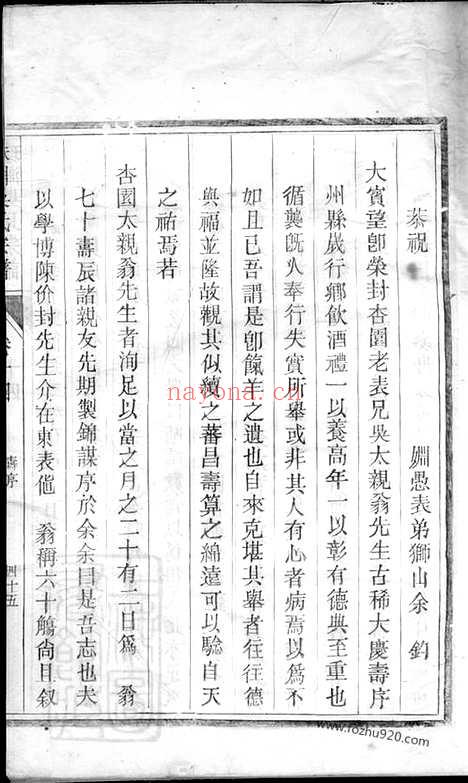 恭祝
姻愚表弟獅山余鈞
大賓望卽榮封杏園老表兄吳太親翁先生古稀大慶壽序
州縣歲行鄉飲酒禮一以養高年一以彰有德典至重也
循襲既久奉行失實所舉或非其人有心者病焉以爲不
如且已吾謂是卽餼羊之遺也自來克堪其舉者往往德
與福並隆故觀其似續之蕃昌壽算之綿遠可以驗自天
之祐焉若
杏園太親翁先生者洵足以當之月之二十有二日爲 翁
七十壽辰諸親友先期製錦謀序於余余曰是吾志也夫
以學博陳价封先生介在東表僬 翁稱六十觴尙且叙
壽序
四十五
nayona.cn
www.fozhu920.com